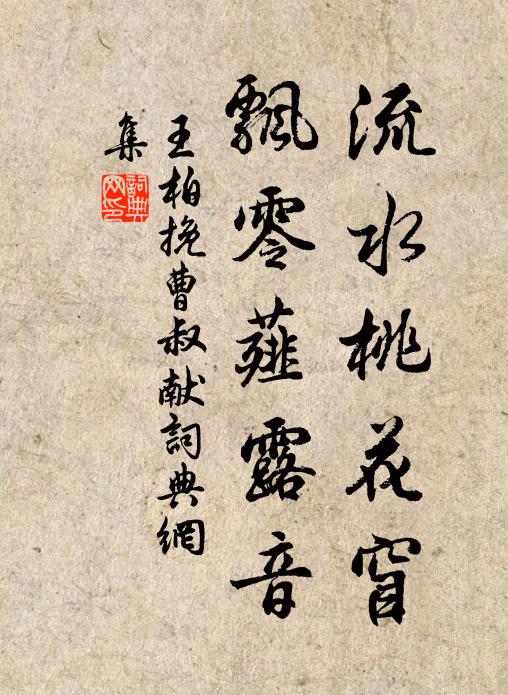 流水桃花窅
飄零薤露音
王柏挽曹叔献詞典網
集
詞典网印